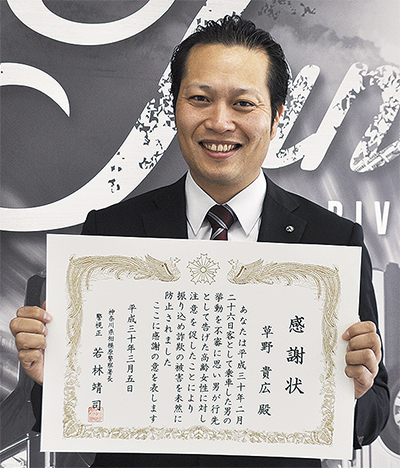 感謝状
草野 貴広 殿
あなたは平成三十年二月
二十六日客として乗車した男の
挙動を不審に思い男が行先
として告げた高齢女性に対し
注意を促したことにより
振り込め詐欺の被害を未然に
防止されました
ここに感謝の意を表します
平成三十年三月五日
神奈川県相模原警察署長
警視正 若林靖司
RIV